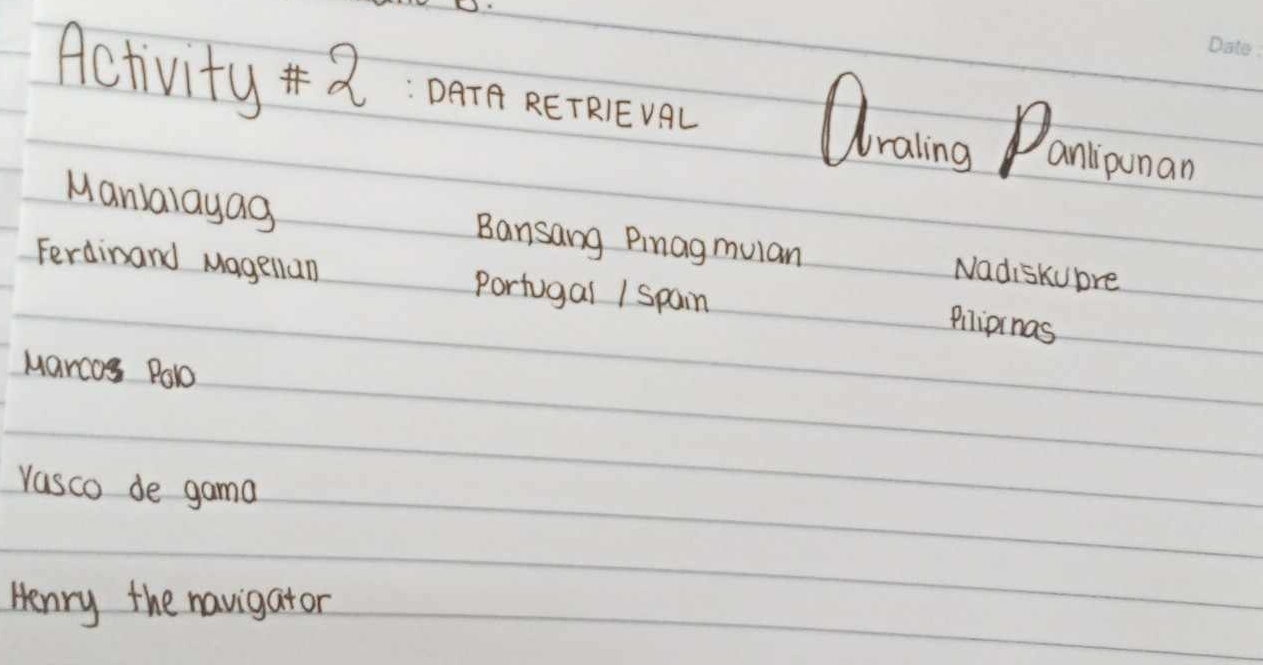 B.
Date :
Activity # 2 : DATA RETRIEVAL Araling Panlipunan
Manlalayag Bansang Pinagmulan Nadiskubre
Ferdinand Magellan Portugal / Spain Pilipinas
Marcos Polo
Vasco de gama
Henry the navigator